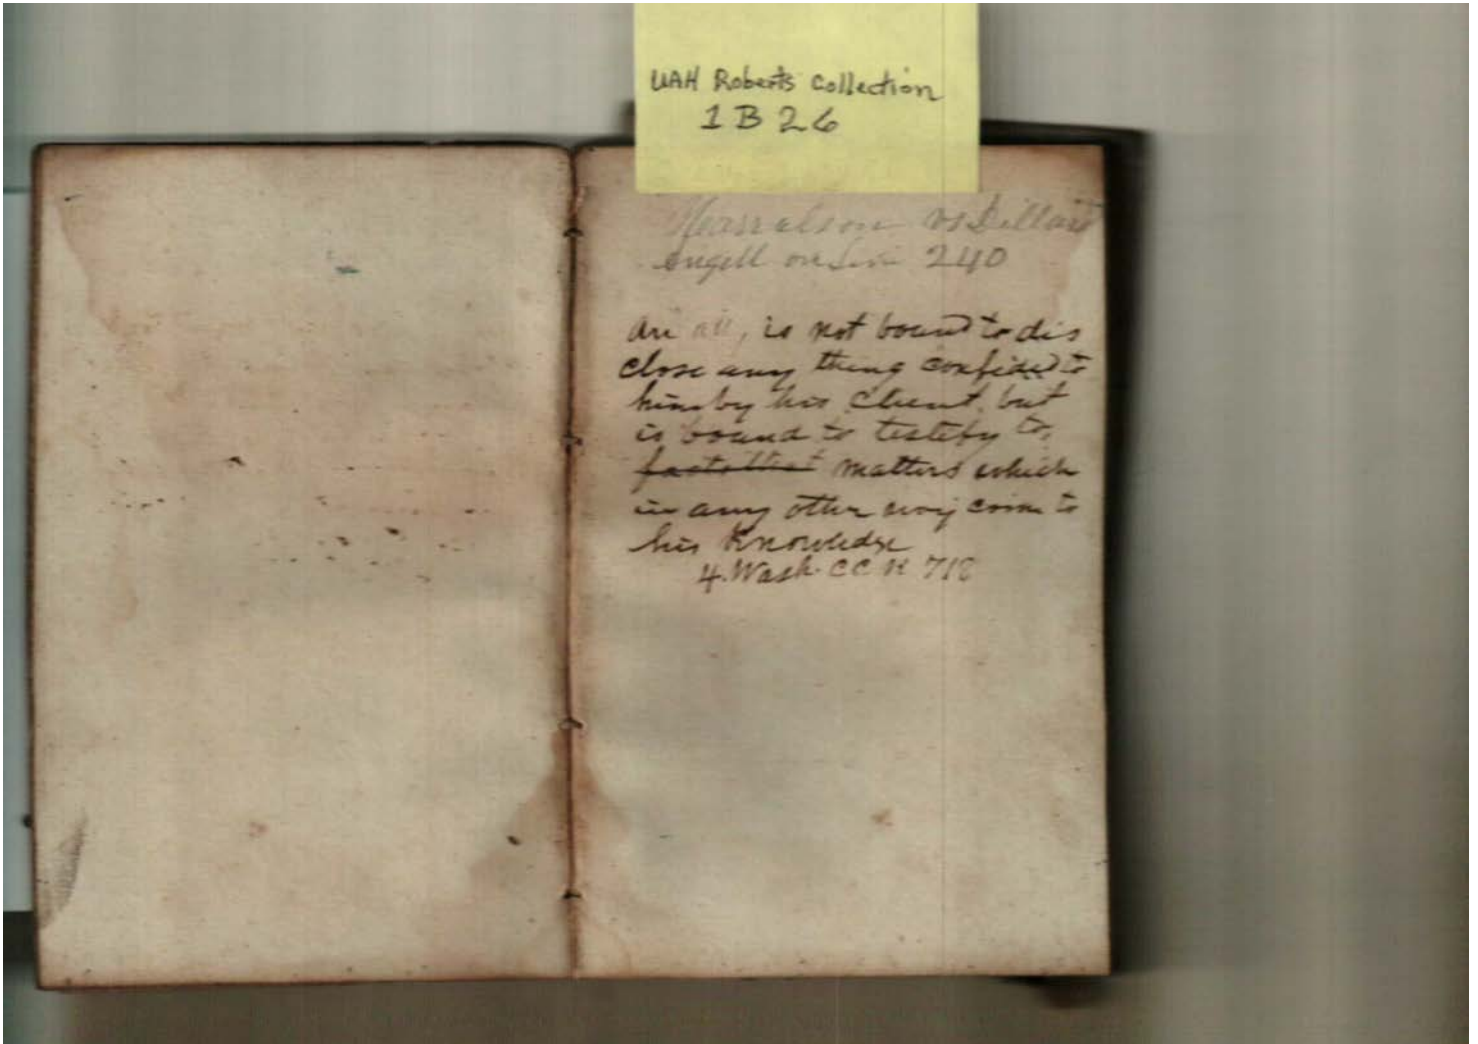 UAH Roberts Collection
1B26
Harralson vs Dillard
Angell on Lim 240
An att, is not bound to dis
close any thing confided to
him by his client, but
is bound to testify to,
facts that matters which
in any other way come to
his Knowledge
4. Wash. CC R 718